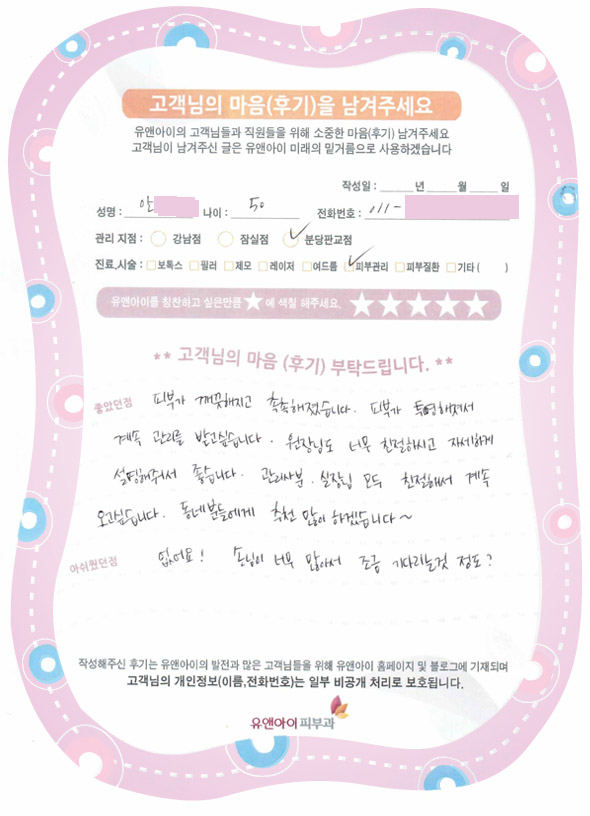 고객님의 마음(후기)을 남겨주세요
유앤아이의 고객님들과 직원들을 위해 소중한 마음(후기) 남겨주세요
고객님이 남겨주신 글은 유앤아이 미래의 밑거름으로 사용하겠습니다
작성일 : 년 월 일
성명 : 안 나이 : 50 전화번호 : 011-
관리 지점 : 강남점 잠실점 분당판교점
진료,시술 : 보톡스 필러 제모 레이저 여드름 피부관리 피부질환 기타 ( )
유앤아이를 칭찬하고 싶은만큼 ★ 에 색칠 해주세요. ★★★★★
** 고객님의 마음 (후기) 부탁드립니다. **
좋았던점 피부가 깨끗해지고 촉촉해졌습니다. 피부가 투명해져서
계속 관리를 받고싶습니다. 원장님도 너무 친절하시고 자세하게
설명해주셔서 좋습니다. 관리사분, 실장님 모두 친절해서 계속
오고싶습니다. 동네분들에게 추천 많이 하겠습니다~
아쉬웠던점 없어요! 손님이 너무 많아서 조금 기다리는것 정도?
작성해주신 후기는 유앤아이의 발전과 많은 고객님들을 위해 유앤아이 홈페이지 및 블로그에 기재되며
고객님의 개인정보(이름,전화번호)는 일부 비공개 처리로 보호됩니다.
유앤아이피부과